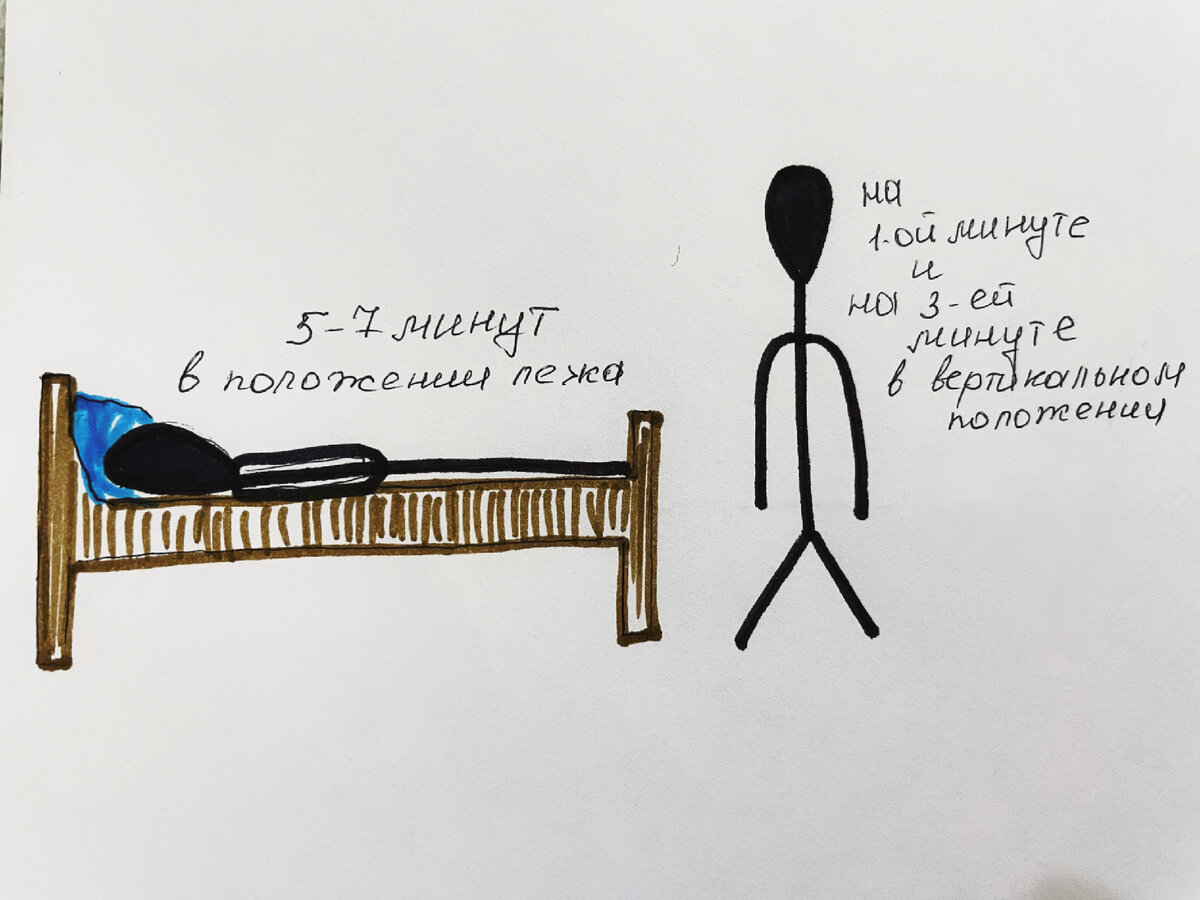 5-7 минут
в положении лежа
на
1-ой минуте
и
на 3-ей
минуте
в вертикальном
положении